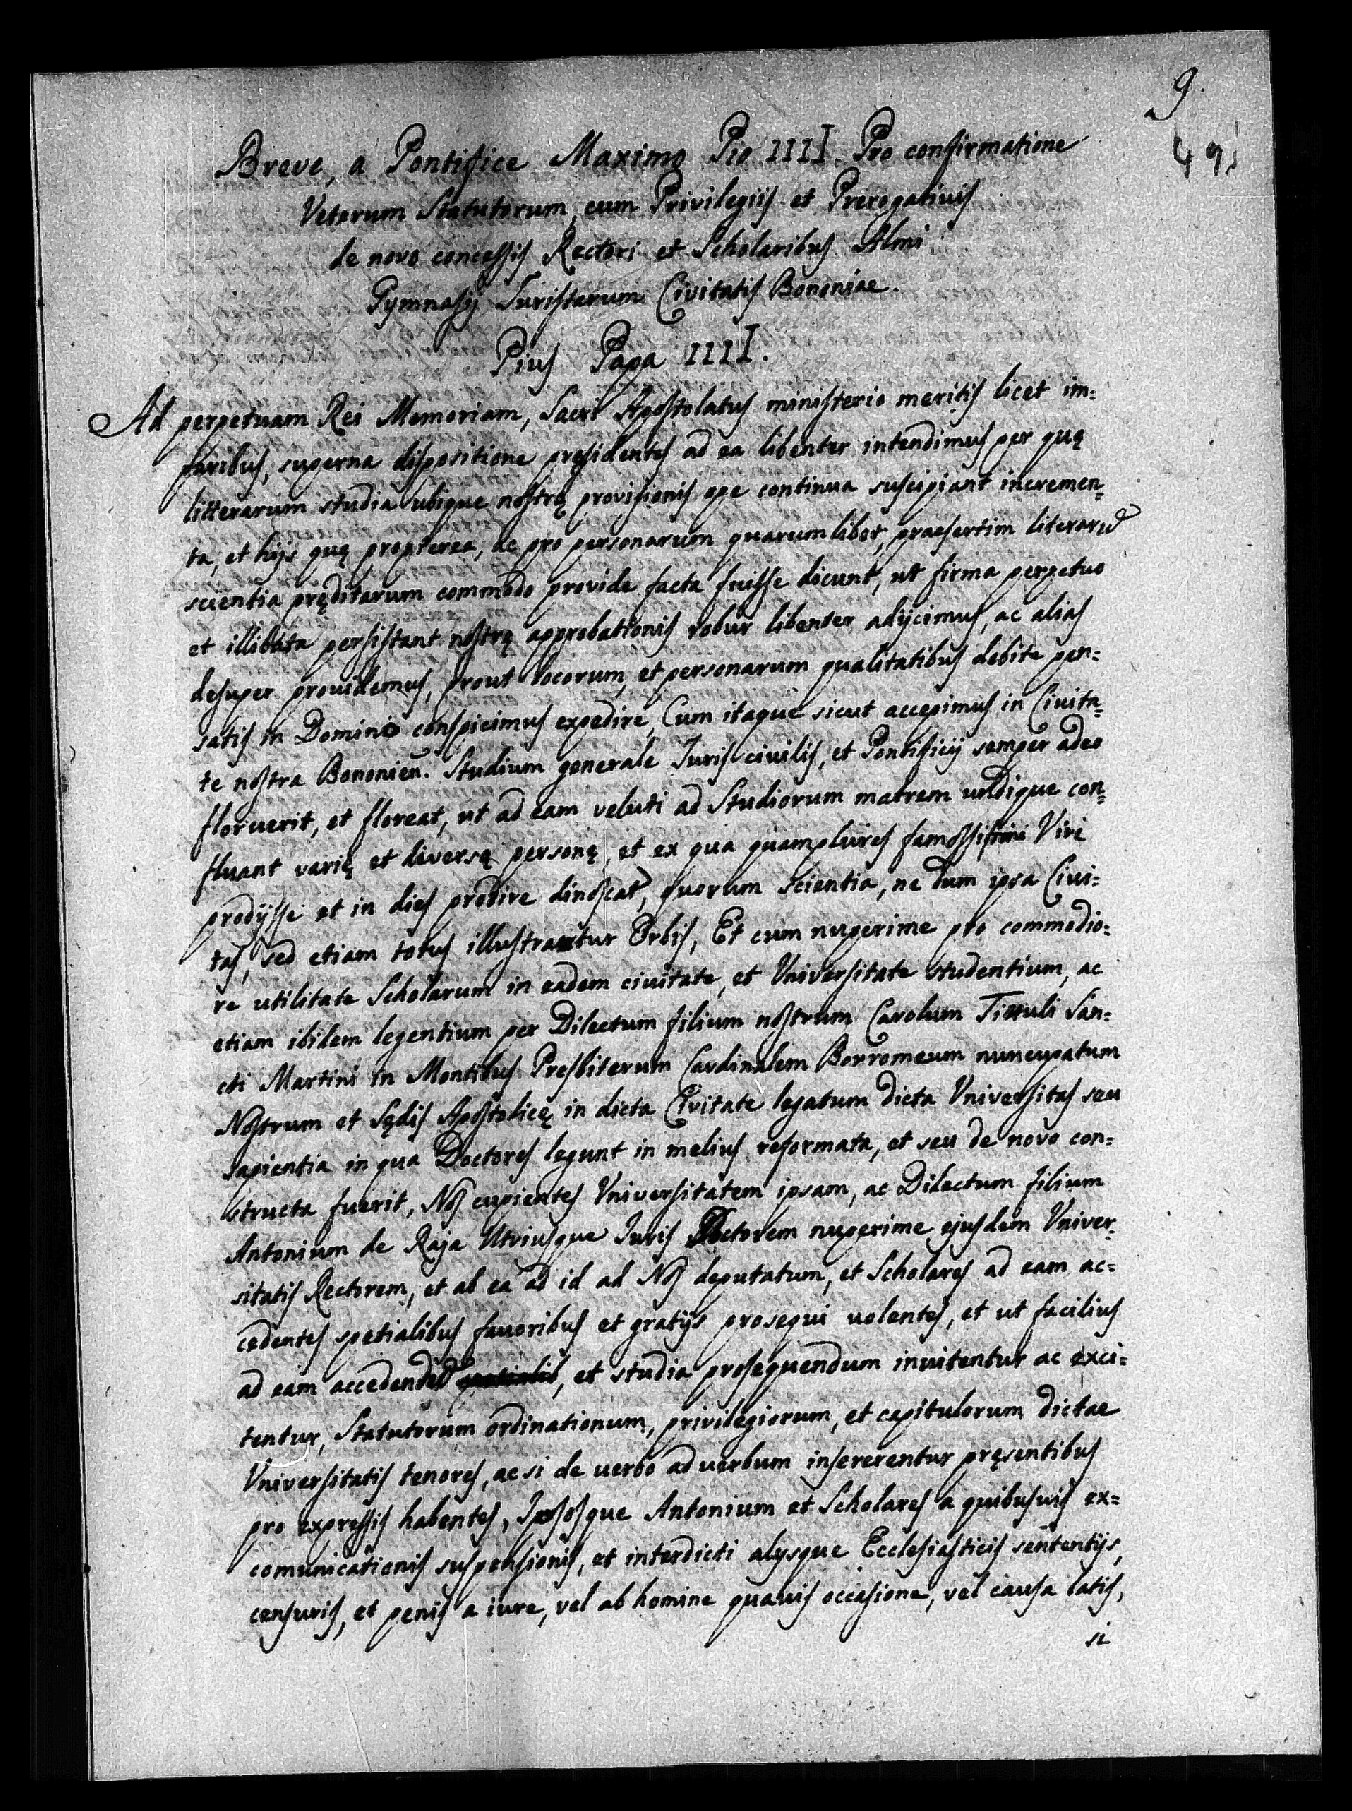 9.
491
Breve, a Pontifice Maximo Pio IIII. Pro confirmatione
Veterum Statutorum, cum Privilegijs et Prerogativis
de novo concessis Rectori et Scholaribus Almi
Gymnasij Iuristarum Civitatis Bononiae.
Pius Papa IIII.
Ad perpetuam Rei Memoriam, Sacri Apostolatus ministerio meritis licet im-
paribus, superna dispositione presidentes ad ea libenter intendimus per quę
litterarum studia ubique nostrę provisionis ope continua suscipiant incremen-
ta, et hijs quę propterea, ac pro personarum quarumlibet, praesertim literarũ
scientia pręditarum commodo provide facta fuisse dicunt, ut firma perpetuo
et illibata persistant nostrę approbationis robur libenter adijcimus, ac alias
desuper providemus, prout locorum, et personarum qualitatibus debite pen-
satis in Domino conspicimus expedire, Cum itaque sicut accepimus in Civita-
te nostra Bononien. Studium generale Iuris civilis, et Pontificij semper adeo
floruerit, et floreat, ut ad eam veluti ad Studiorum matrem undique con-
fluant varię et diversę personę, et ex qua quamplures famosissimi Viri
prodijsse et in dies prodire dinoscat, quorum scientia, ne dum ipsa Civi-
tas, sed etiam totus illustraretur Orbis, Et cum nuperime pro commodio-
re utilitate Scholarum in eadem civitate, et Vniversitate studentium, ac
etiam ibidem legentium per Dilectum filium nostrum Carolum Tittuli San-
cti Martini in Montibus Presbiterum Cardinalem Borromeum nuncupatum
Nostrum et Sędis Apostolicę in dicta Civitate legatum dicta Vniversitas seu
sapientia in qua Doctores legunt in melius reformata, et seu de novo con-
structa fuerit, Nos cupientes Vniversitatem ipsam, ac Dilectum filium
Antonium de Raja Utriusque Iuris Doctorem nuperime ejusdem Vniver-
sitatis Rectorem, et ab ea ad id ad Nos deputatum, et Scholares ad eam ac-
cedentes spetialibus favoribus et gratijs prosequi volentes, et ut facilius
ad eam accedendũ, et studia prosequendum invitentur ac exci-
tentur, Statutorum ordinationum, privilegiorum, et capitulorum dictae
Vniversitatis tenores, ac si de verbo ad verbum insererentur pręsentibus
pro expressis habentes, Ipsosque Antonium et Scholares a quibusvis ex-
comunicationis suspensionis, et interdicti alysque Ecclesiasticis sententijs,
censuris, et penis a iure, vel ab homine quavis occasione, vel causa latis,
si